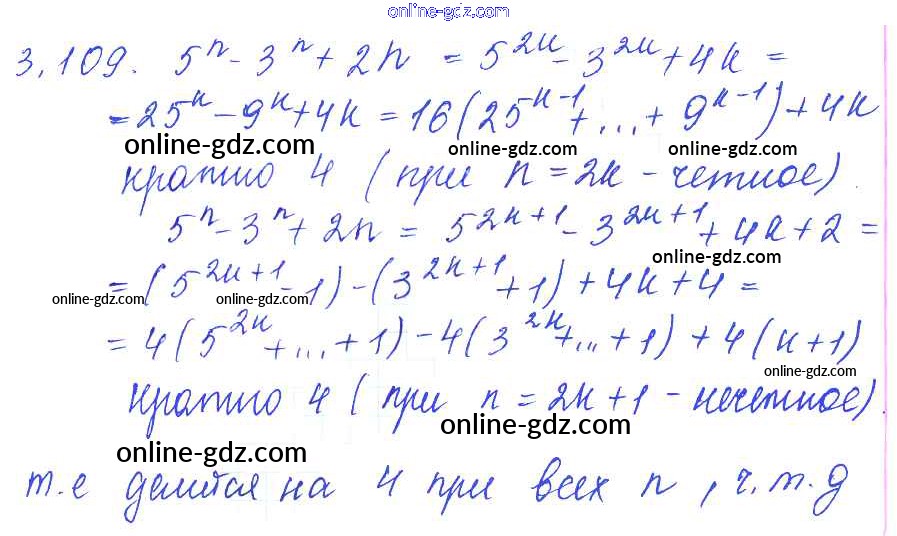 online-gdz.com
3.109. 5^n - 3^n + 2n = 5^{2k} - 3^{2k} + 4k =
= 25^k - 9^k + 4k = 16(25^{k-1} + ... + 9^{k-1}) + 4k
online-gdz.com online-gdz.com online-gdz.com
кратно 4 (при n = 2k - четное).
5^n - 3^n + 2n = 5^{2k+1} - 3^{2k+1} + 4k + 2 =
online-gdz.com
= (5^{2k+1} - 1) - (3^{2k+1} + 1) + 4k + 4 =
online-gdz.com online-gdz.com online-gdz.com
= 4(5^{2k} + ... + 1) - 4(3^{2k} + ... + 1) + 4(k+1)
online-gdz.com
кратно 4 (при n = 2k + 1 - нечетное).
online-gdz.com
online-gdz.com
т.е делится на 4 при всех n, ч.т.д
online-gdz.com
online-gdz.com